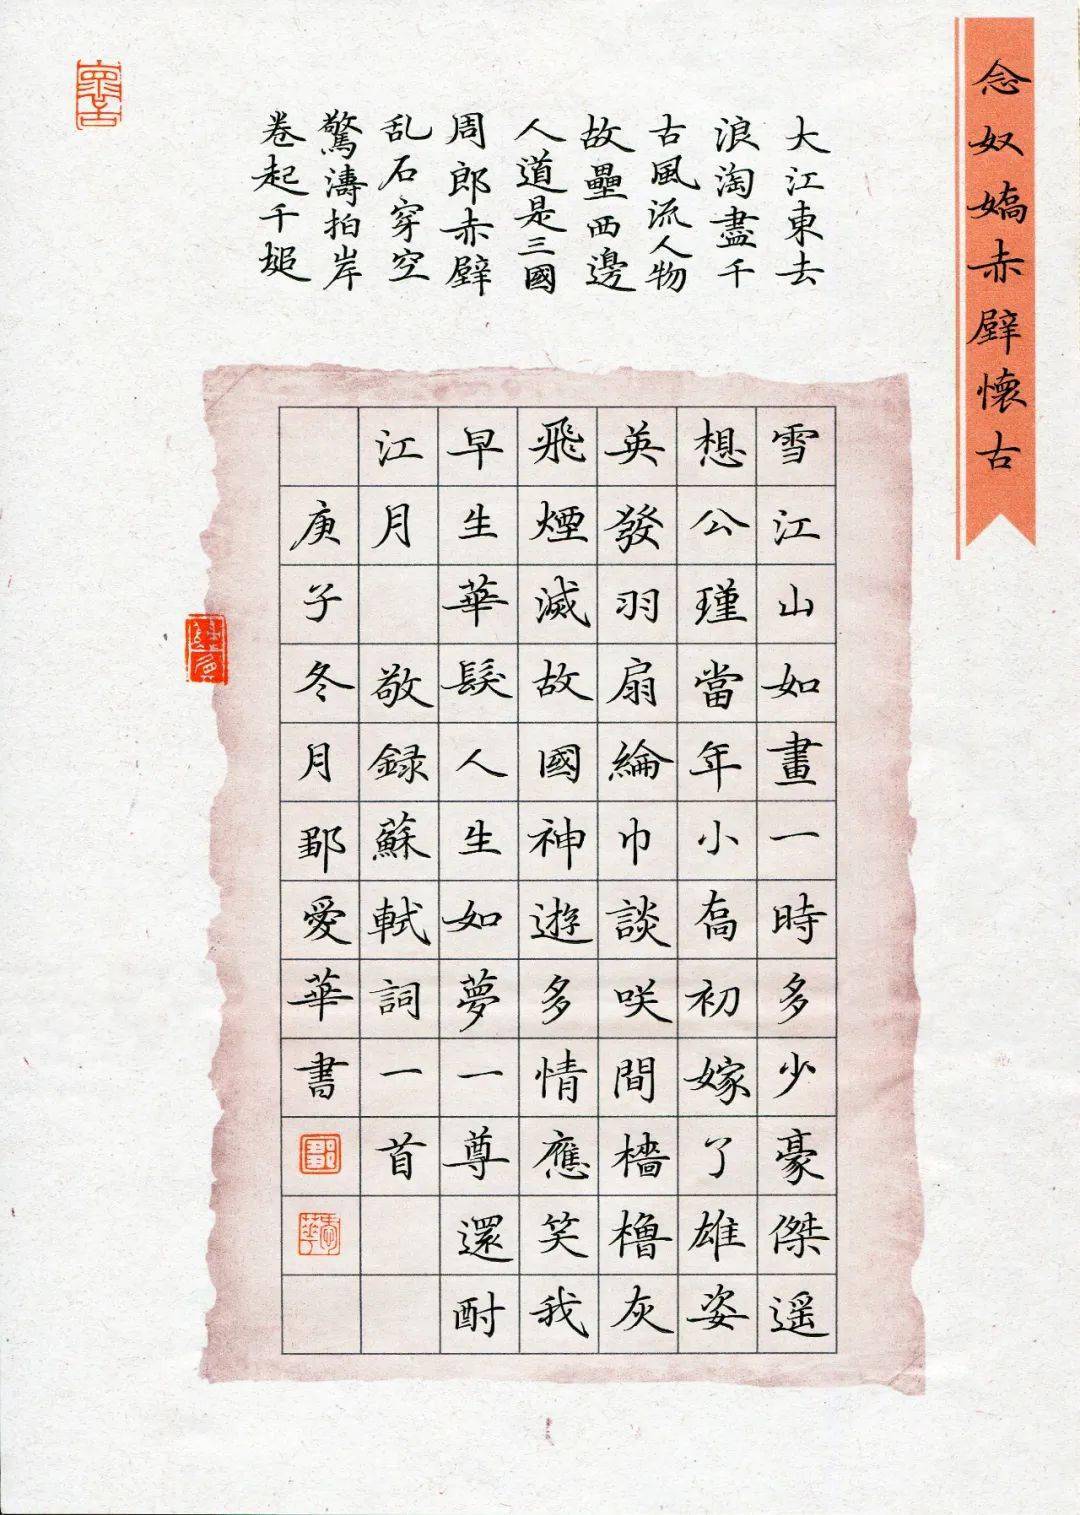 念奴嬌赤壁懷古
大江東去
浪淘盡千
古風流人物
故壘西邊
人道是三國
周郎赤壁
乱石穿空
驚濤拍岸
卷起千塠
雪江山如畫一時多少豪傑遥
想公瑾當年小喬初嫁了雄姿
英發羽扇綸巾談咲間檣櫓灰
飛煙滅故國神遊多情應笑我
早生華髮人生如夢一尊還酹
江月 敬録蘇軾詞一首
庚子冬月鄒愛華書